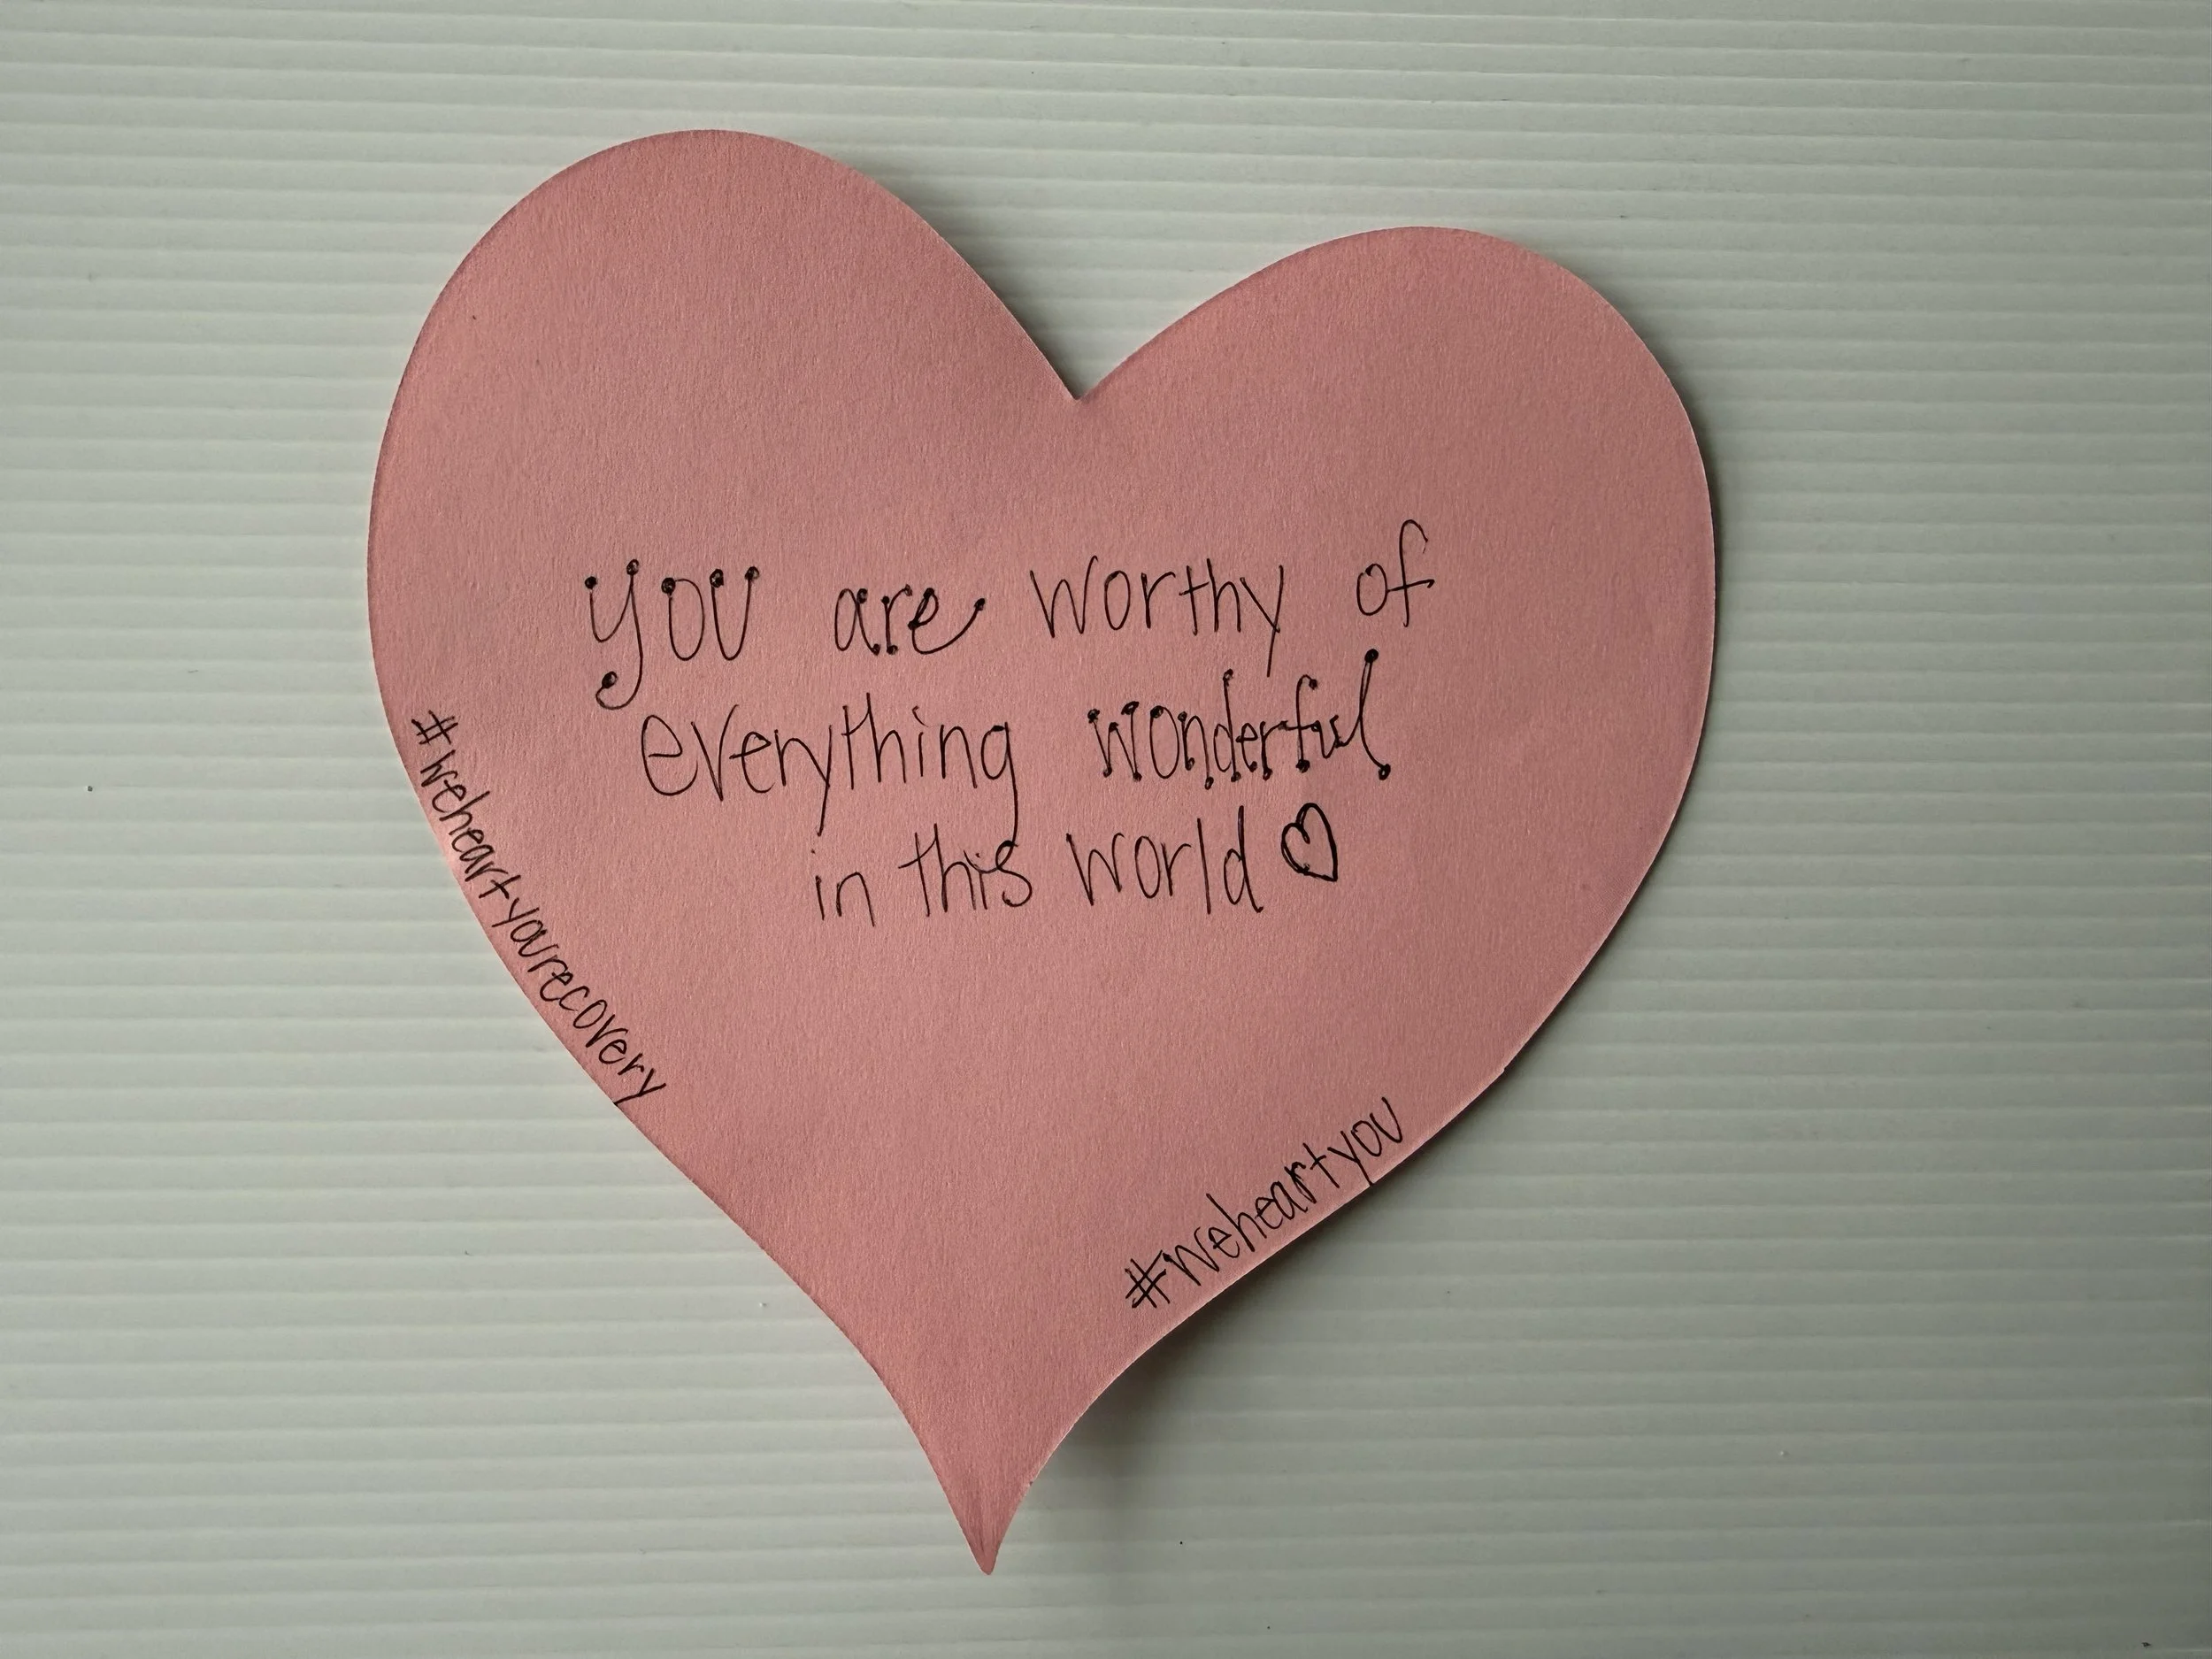 you are worthy of
everything wonderful
in this world ♡
#weheartyourecovery
#weheartyou